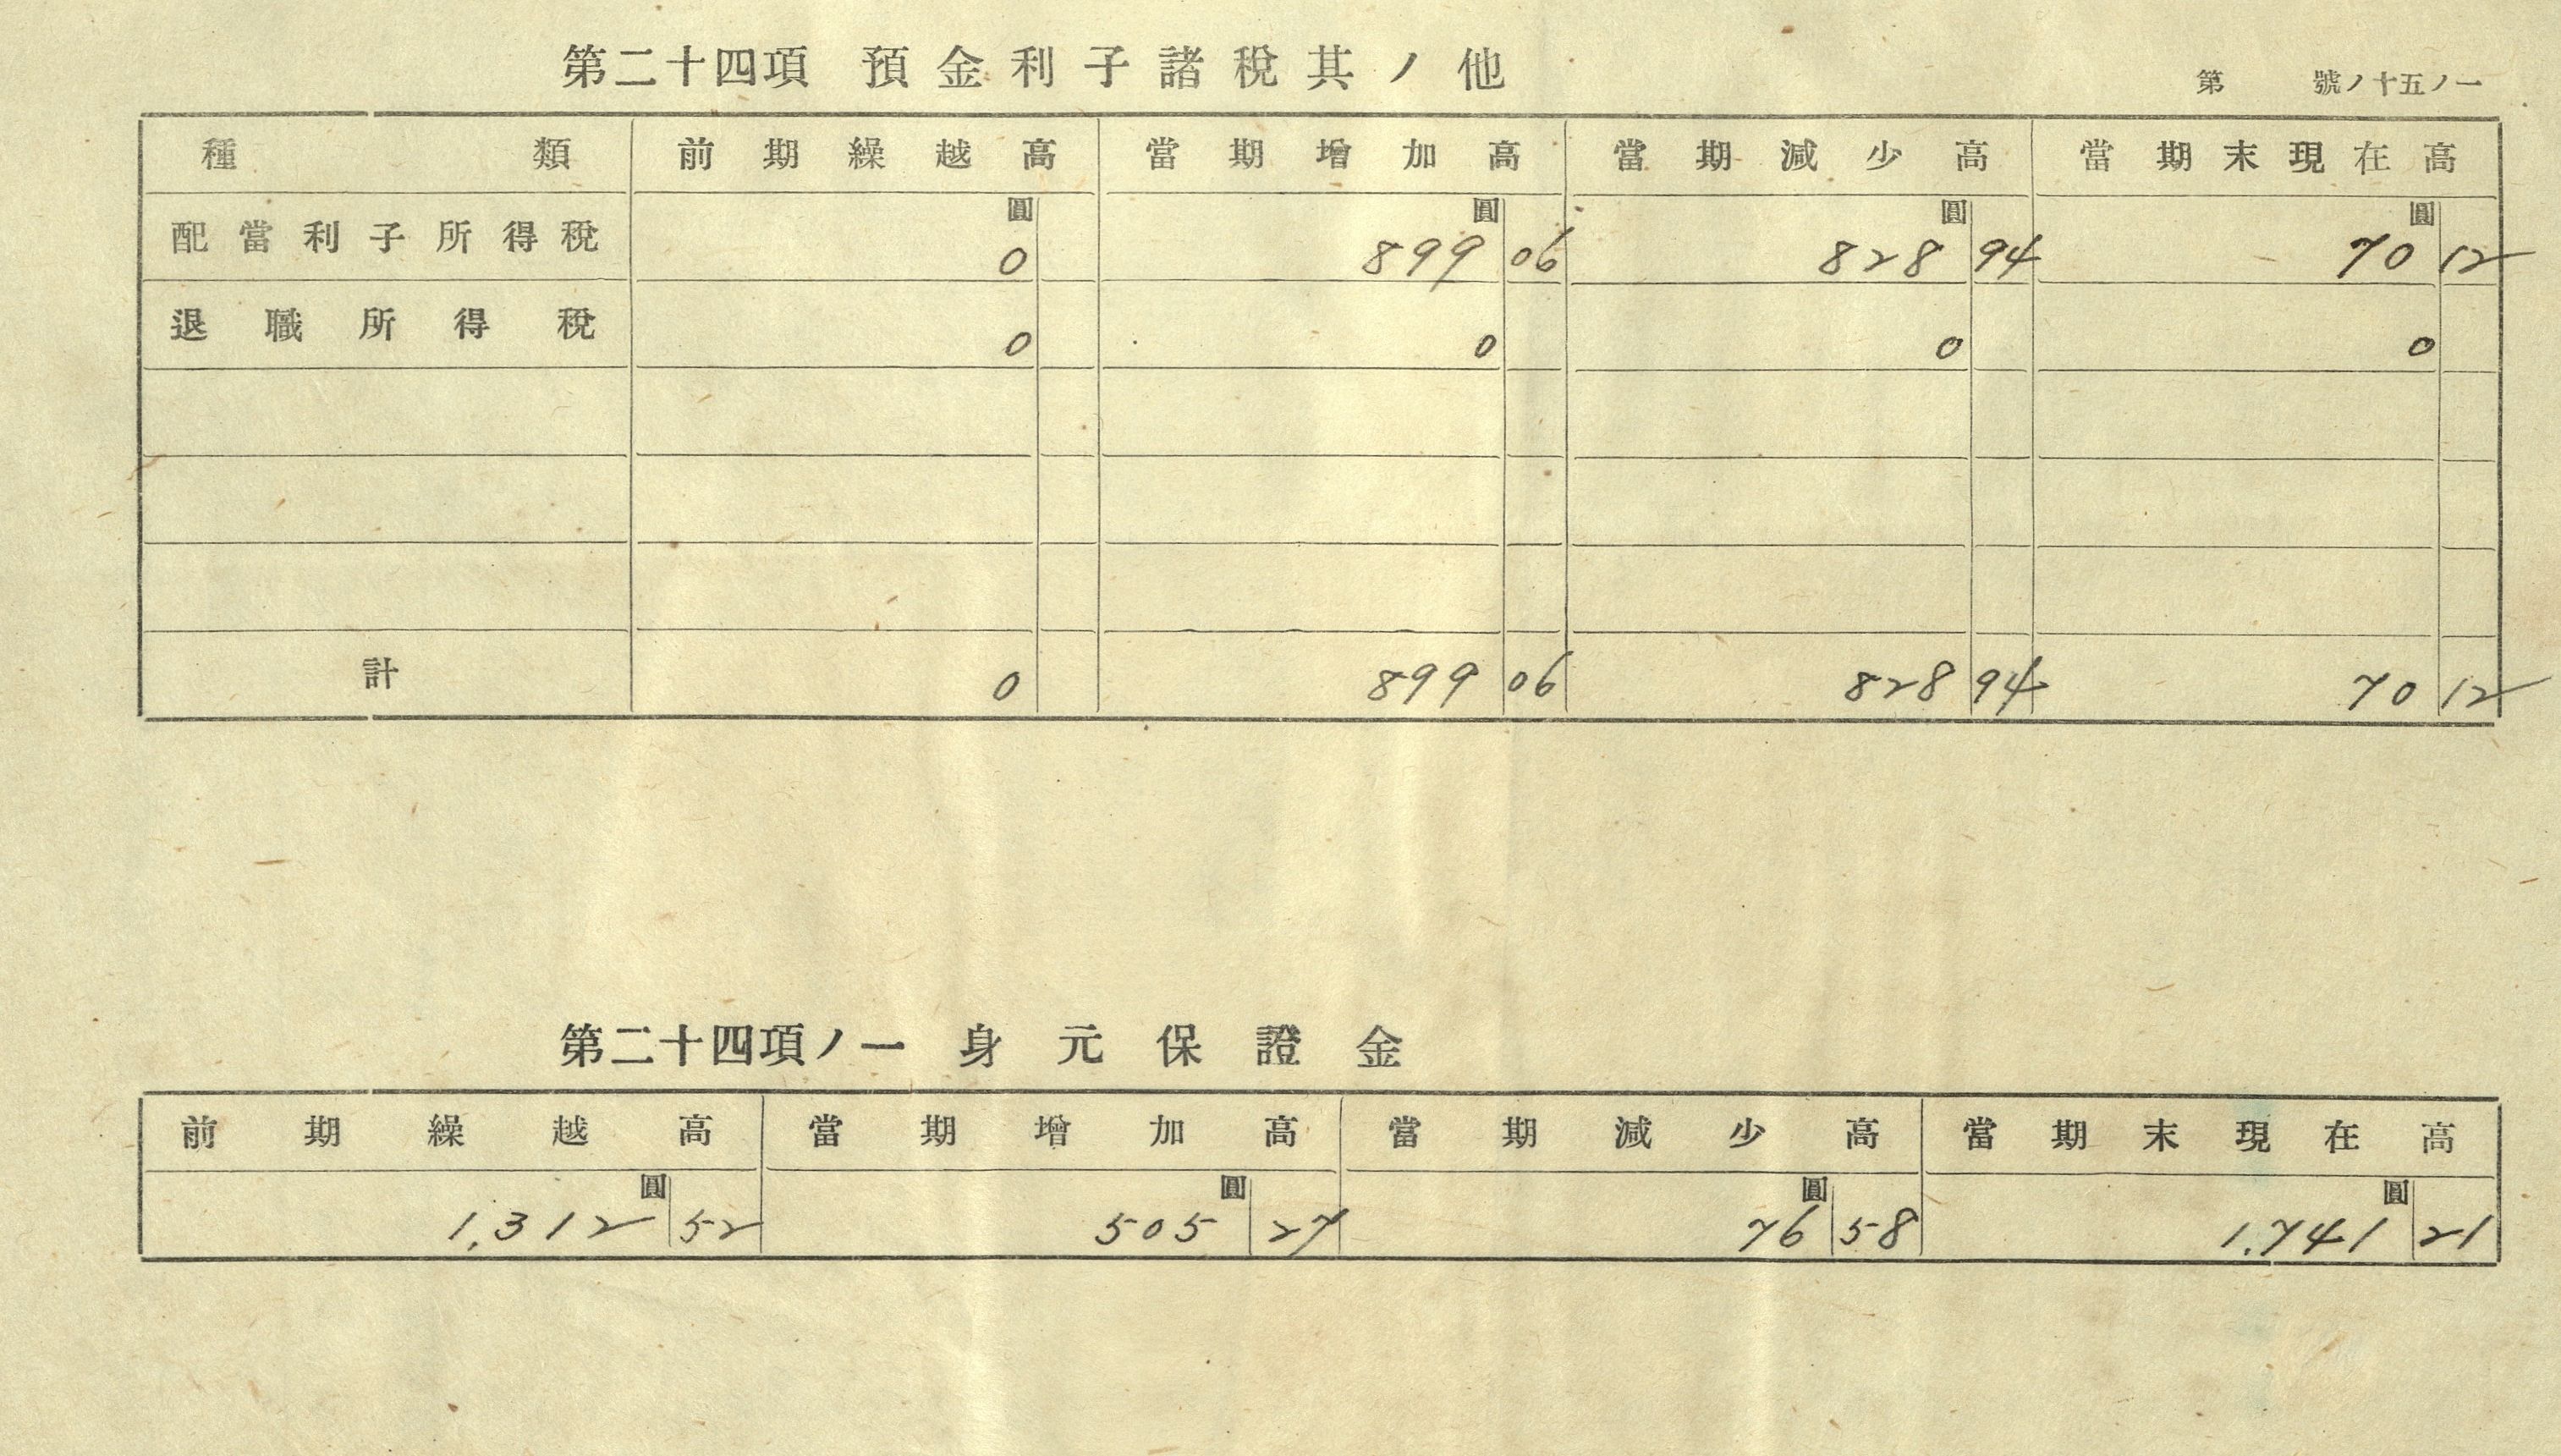 第二十四項 預金利子諸税其ノ他
第 號ノ十五ノ一
種類 前期繰越高 當期增加高 當期減少高 當期末現在高
圓 圓 圓 圓
配當利子所得税 0 899 06 828 94 70 12
退職所得税 0 0 0 0
計 0 899 06 828 94 70 12
第二十四項ノ一 身元保證金
前期繰越高 當期增加高 當期減少高 當期末現在高
圓 圓 圓 圓
1,312 52 505 27 76 58 1,741 21